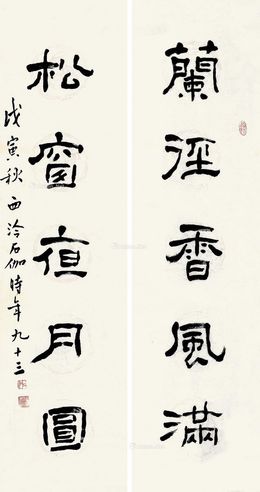 蘭徑香風滿
松窗夜月圓
戊寅秋西泠石伽時年九十三